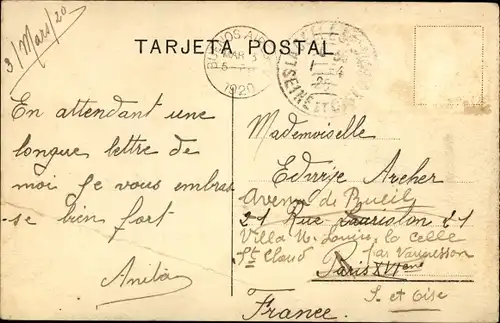 3/Mars/20
TARJETA POSTAL
BUENOS AIRES
MAR 3
1920
SEINE ET
En attendant une
longue lettre de
moi je vous embras
-se bien fort
Anita
Mademoiselle
Archer
Avenue de Rueil
21 Rue Lauriston 21
Villa la Celle
St Cloud par Vaucresson
Paris XVIeme
S. et Oise
France.